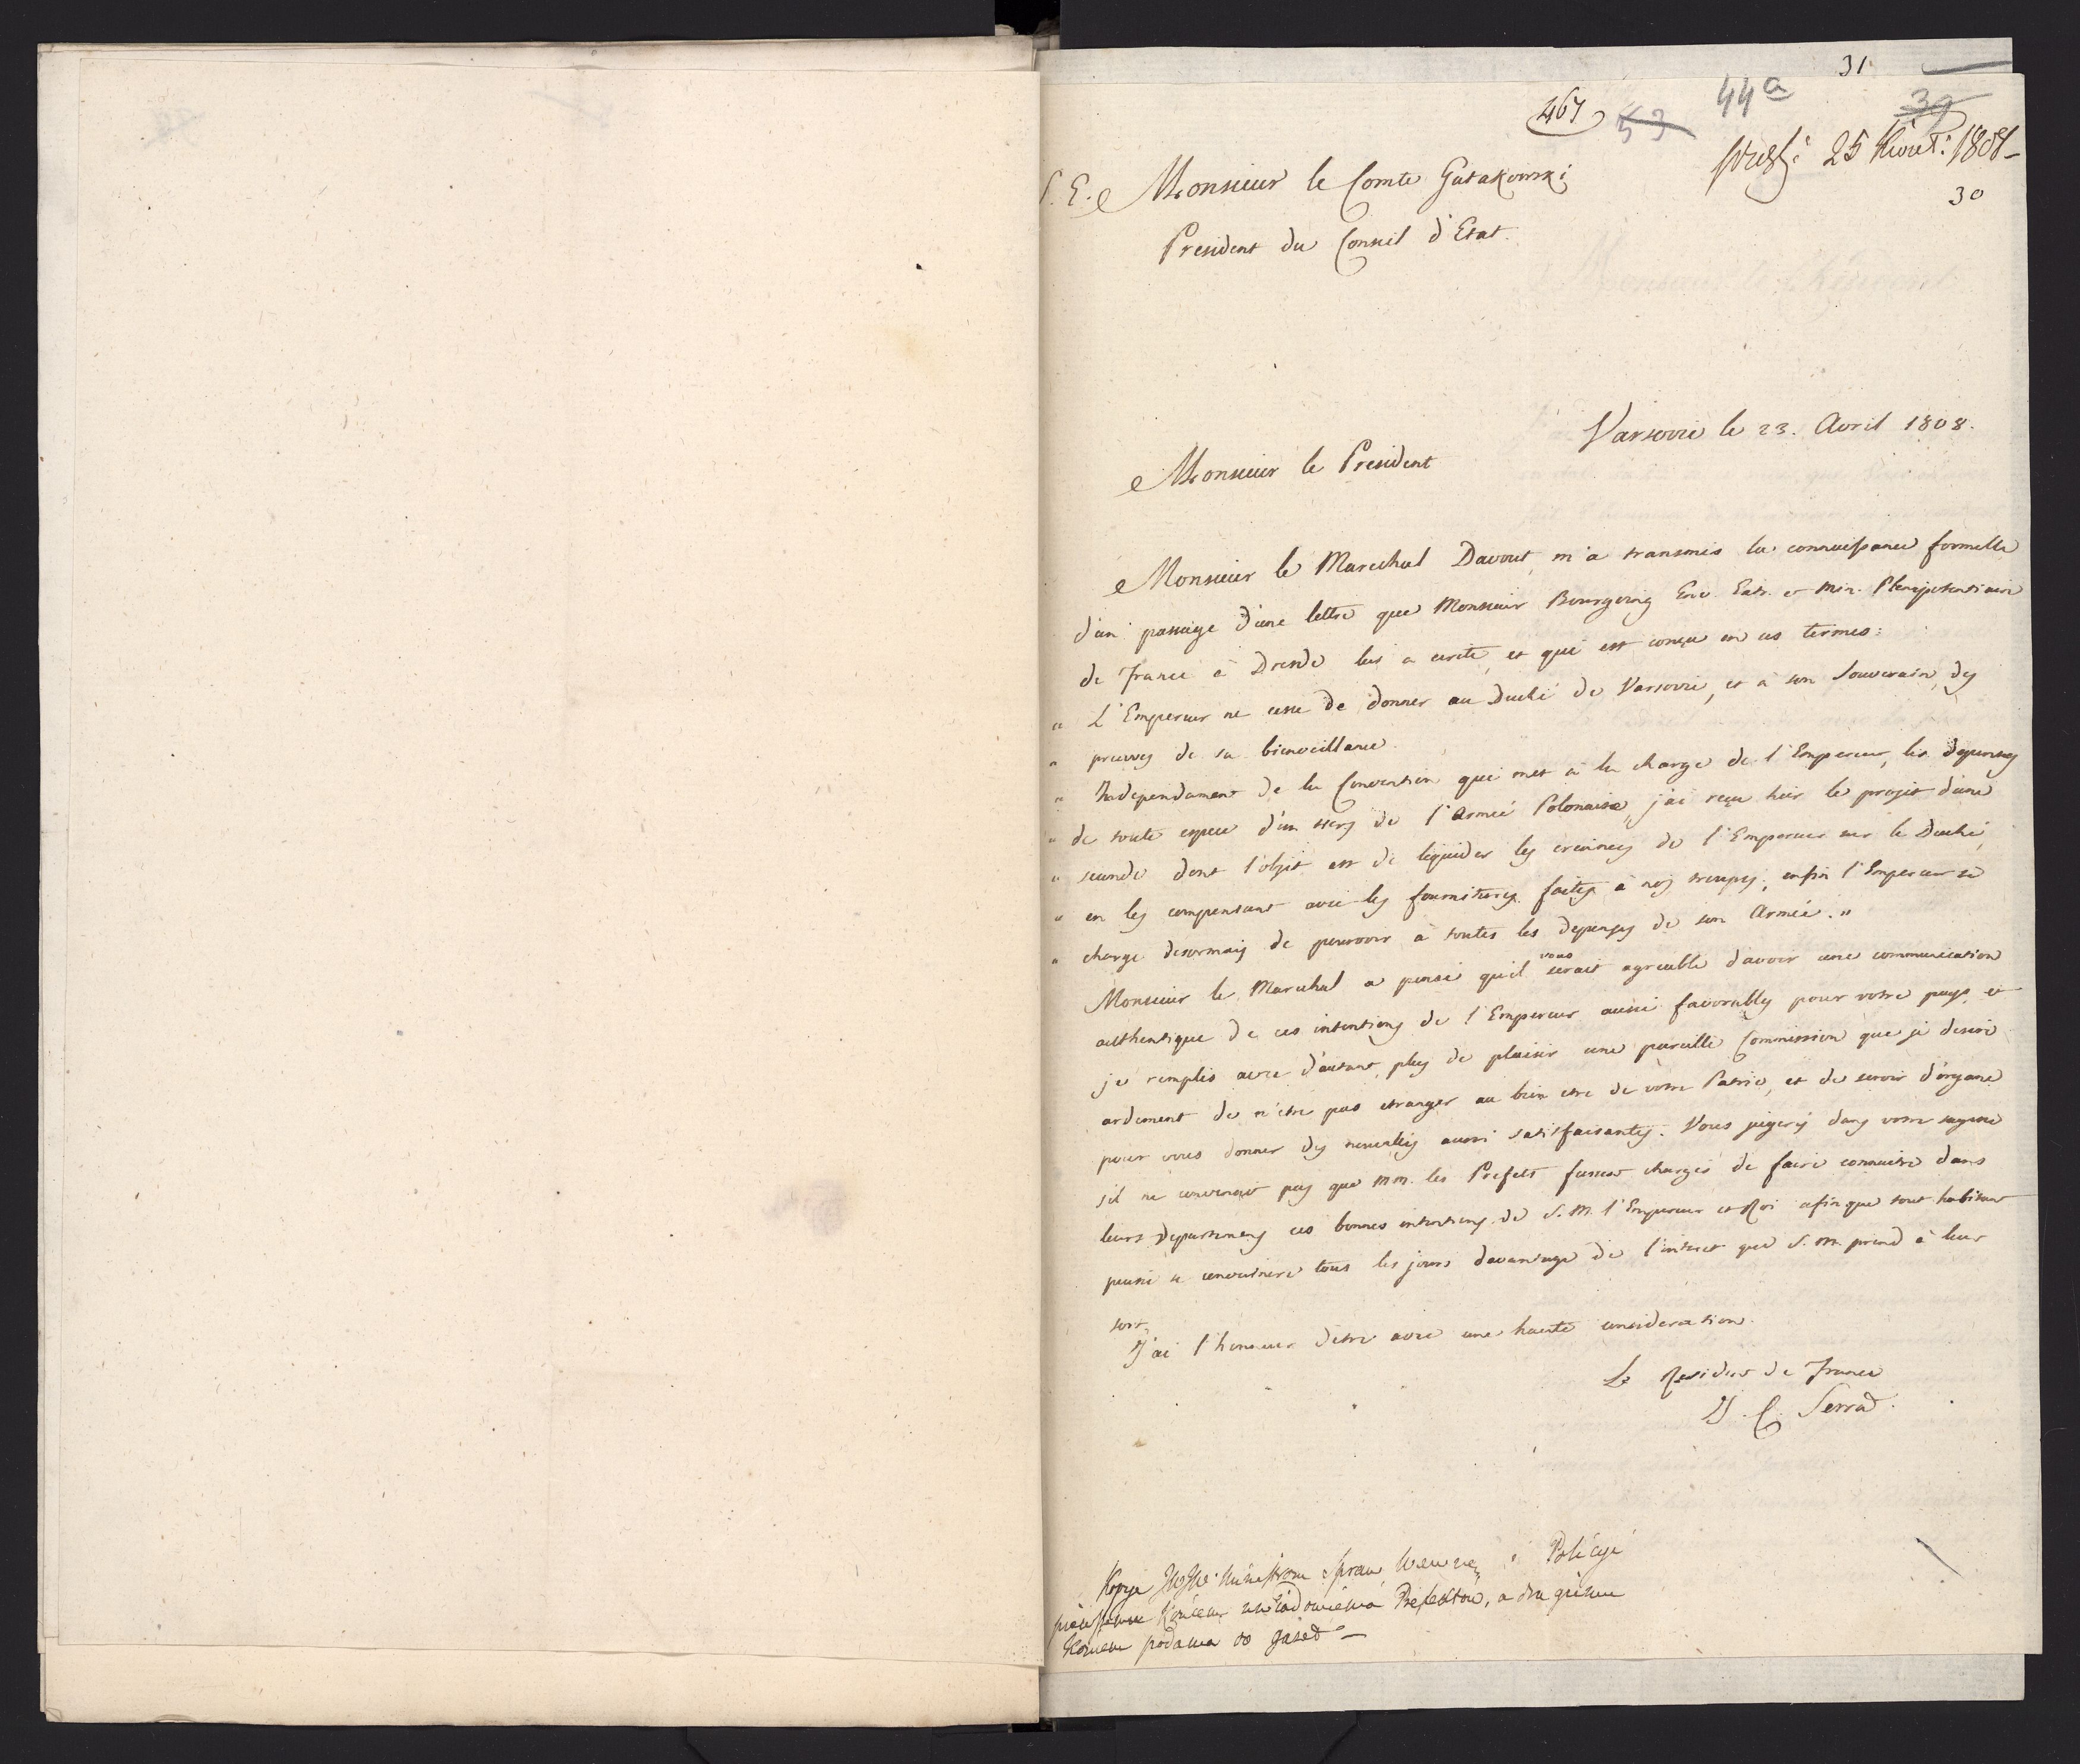 31
467 53 44a 39
25 Kwiet: 1808 –
30
S. E. Monsieur le Comte Gutakowski
President du Conseil d'Etat.
Varsovie le 23. Avril 1808.
Monsieur le President
Monsieur le Marechal Davout, m'a transmis la connaissance formelle
d'un passage d'une lettre que Monsieur Bourgoing Env. Extr. et Min. Plenipotentiaire
de France à Dresde lui a ecrite, et qui est conçu en ces termes:
" L'Empereur ne cesse de donner au Duché de Varsovie, et à son Souverain, des
" preuves de sa bienveillance.
" Independament de la Convention qui met à la charge de l'Empereur, les depenses
" de toute espece d'un tiers de l'Armée Polonaise, j'ai reçu hier le projet d'une
" seconde dont l'objet est de liquider les creances de l'Empereur sur le Duché,
" en les compensant avec les fournitures faites à nos troupes; enfin l'Empereur se
" charge desormais de pourvoir à toutes les depenses de son Armée. "
Monsieur le Marechal a pensé qu'il vous serait agreable d'avoir une communication
authentique de ces intentions de l'Empereur aussi favorables pour votre pays, et
je remplis avec d'autant plus de plaisir une pareille Commission que je desire
ardement de n'etre pas etranger au bien etre de votre Patrie, et de servir d'organe
pour vous donner des nouvelles aussi satisfaisantes. Vous jugerés dans votre sagesse
s'il ne convenait pas que MM. les Prefets fussent chargés de faire connaitre dans
leurs departemens ces bonnes intentions de S. M. l'Empereur et Roi afin que tout habitant
puisse se convaincre tous les jours davantage de l'interet que S. M. prend à leur
sort.
J'ai l'honneur d'etre avec une haute consideration.
Le Resident de France
J. C. Serra.
Kopja JWJW Ministrom Spraw Wewnę: i Policyi
pierwszemu Końcem uwiadomienia Prefektów, a drugiemu
Końcem podania do gazet –